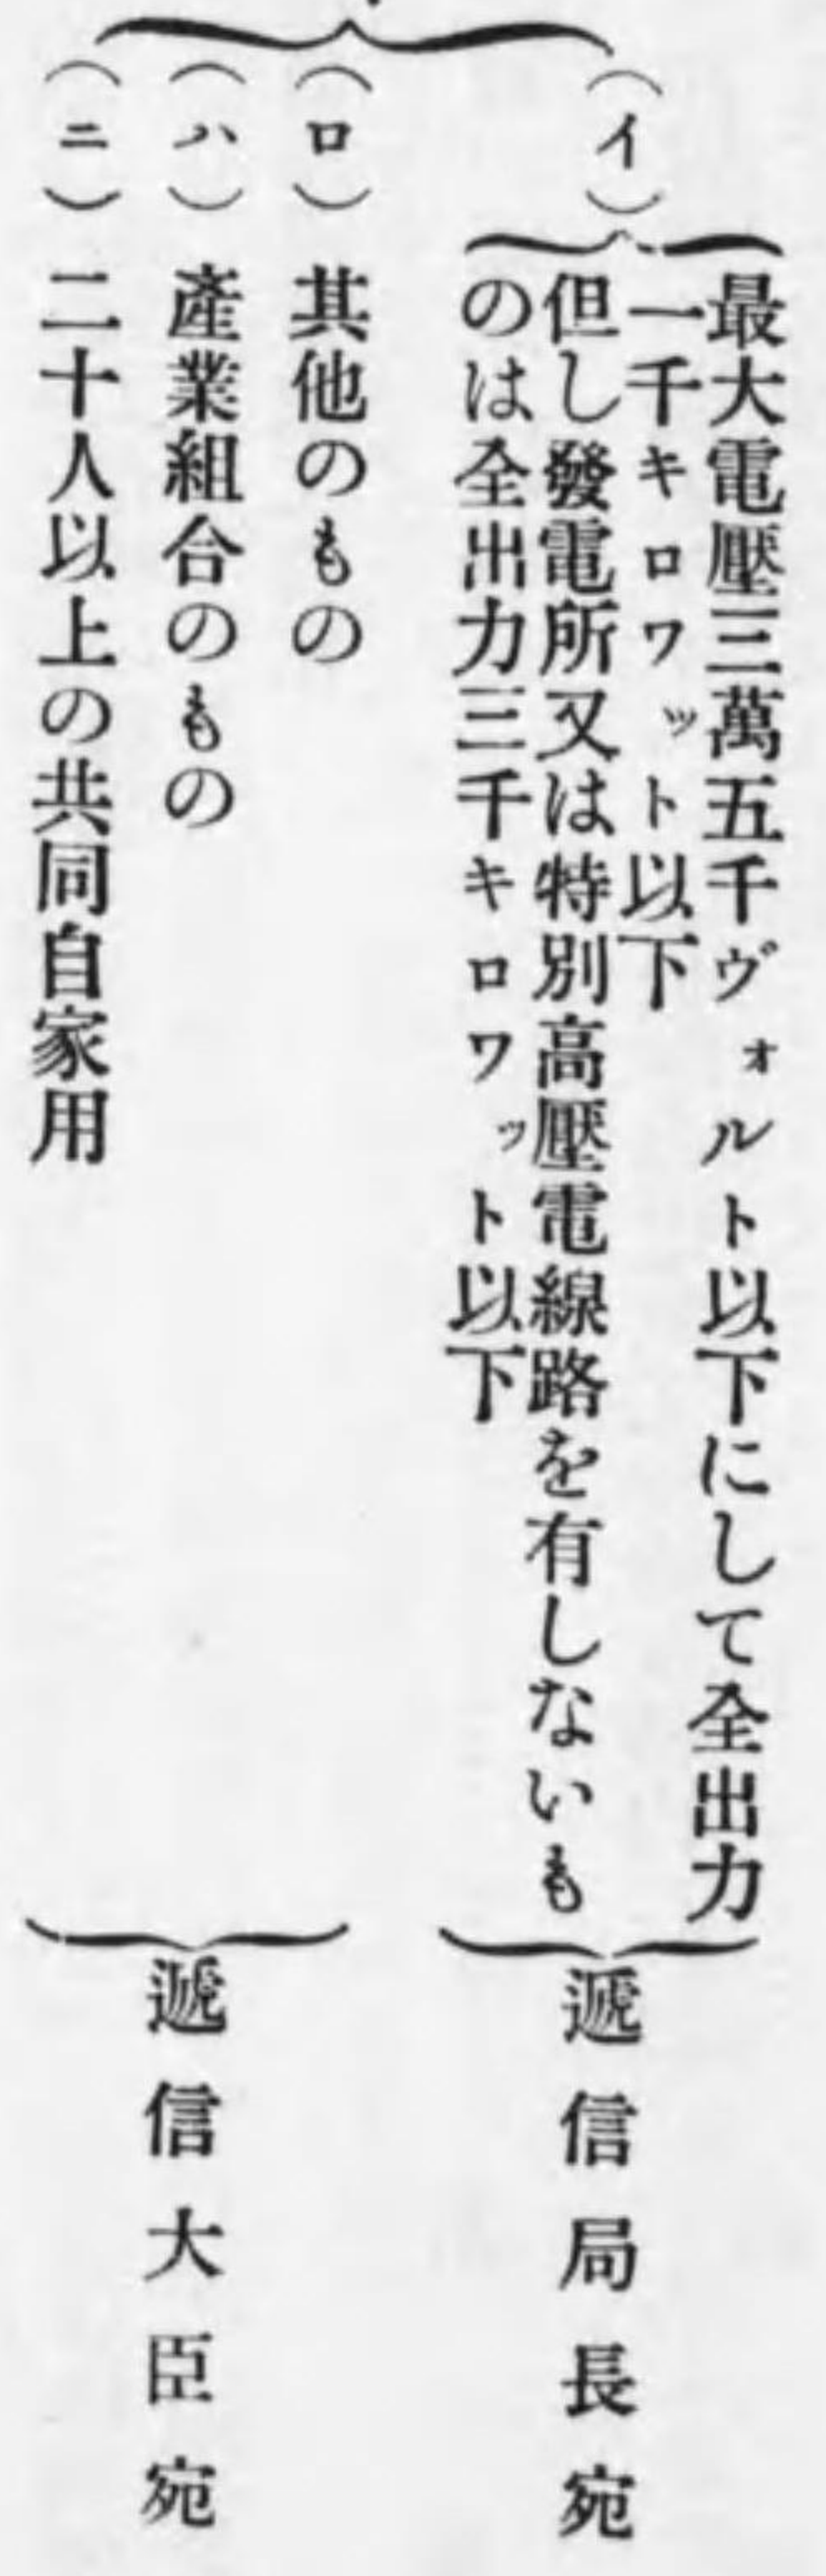 （イ）
最大電壓三萬五千ヴォルト以下にして全出力
一千キロワット以下
但し發電所又は特別高壓電線路を有しないも
のは全出力三千キロワット以下
遞信局長宛
（ロ）其他のもの
（ハ）產業組合のもの
（ニ）二十人以上の共同自家用
遞信大臣宛